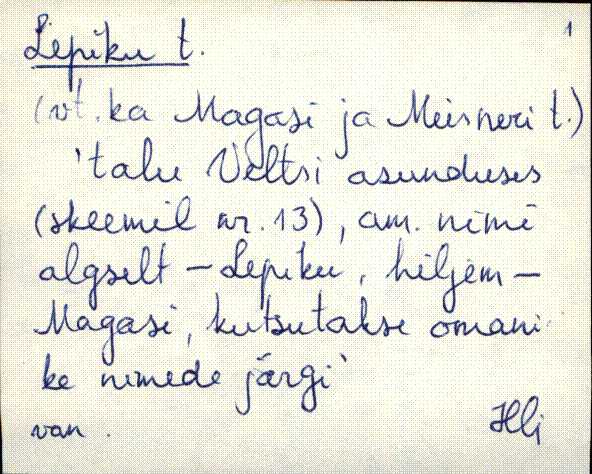 1
Lepiku t.
(vt. ka Magasi ja Meisneri t.)
'talu Veltsi asunduses
(skeemil nr. 13), am. nimi
algselt – Lepiku, hiljem –
Magasi, kutsutakse omani
ke nimede järgi'
van.
Hli